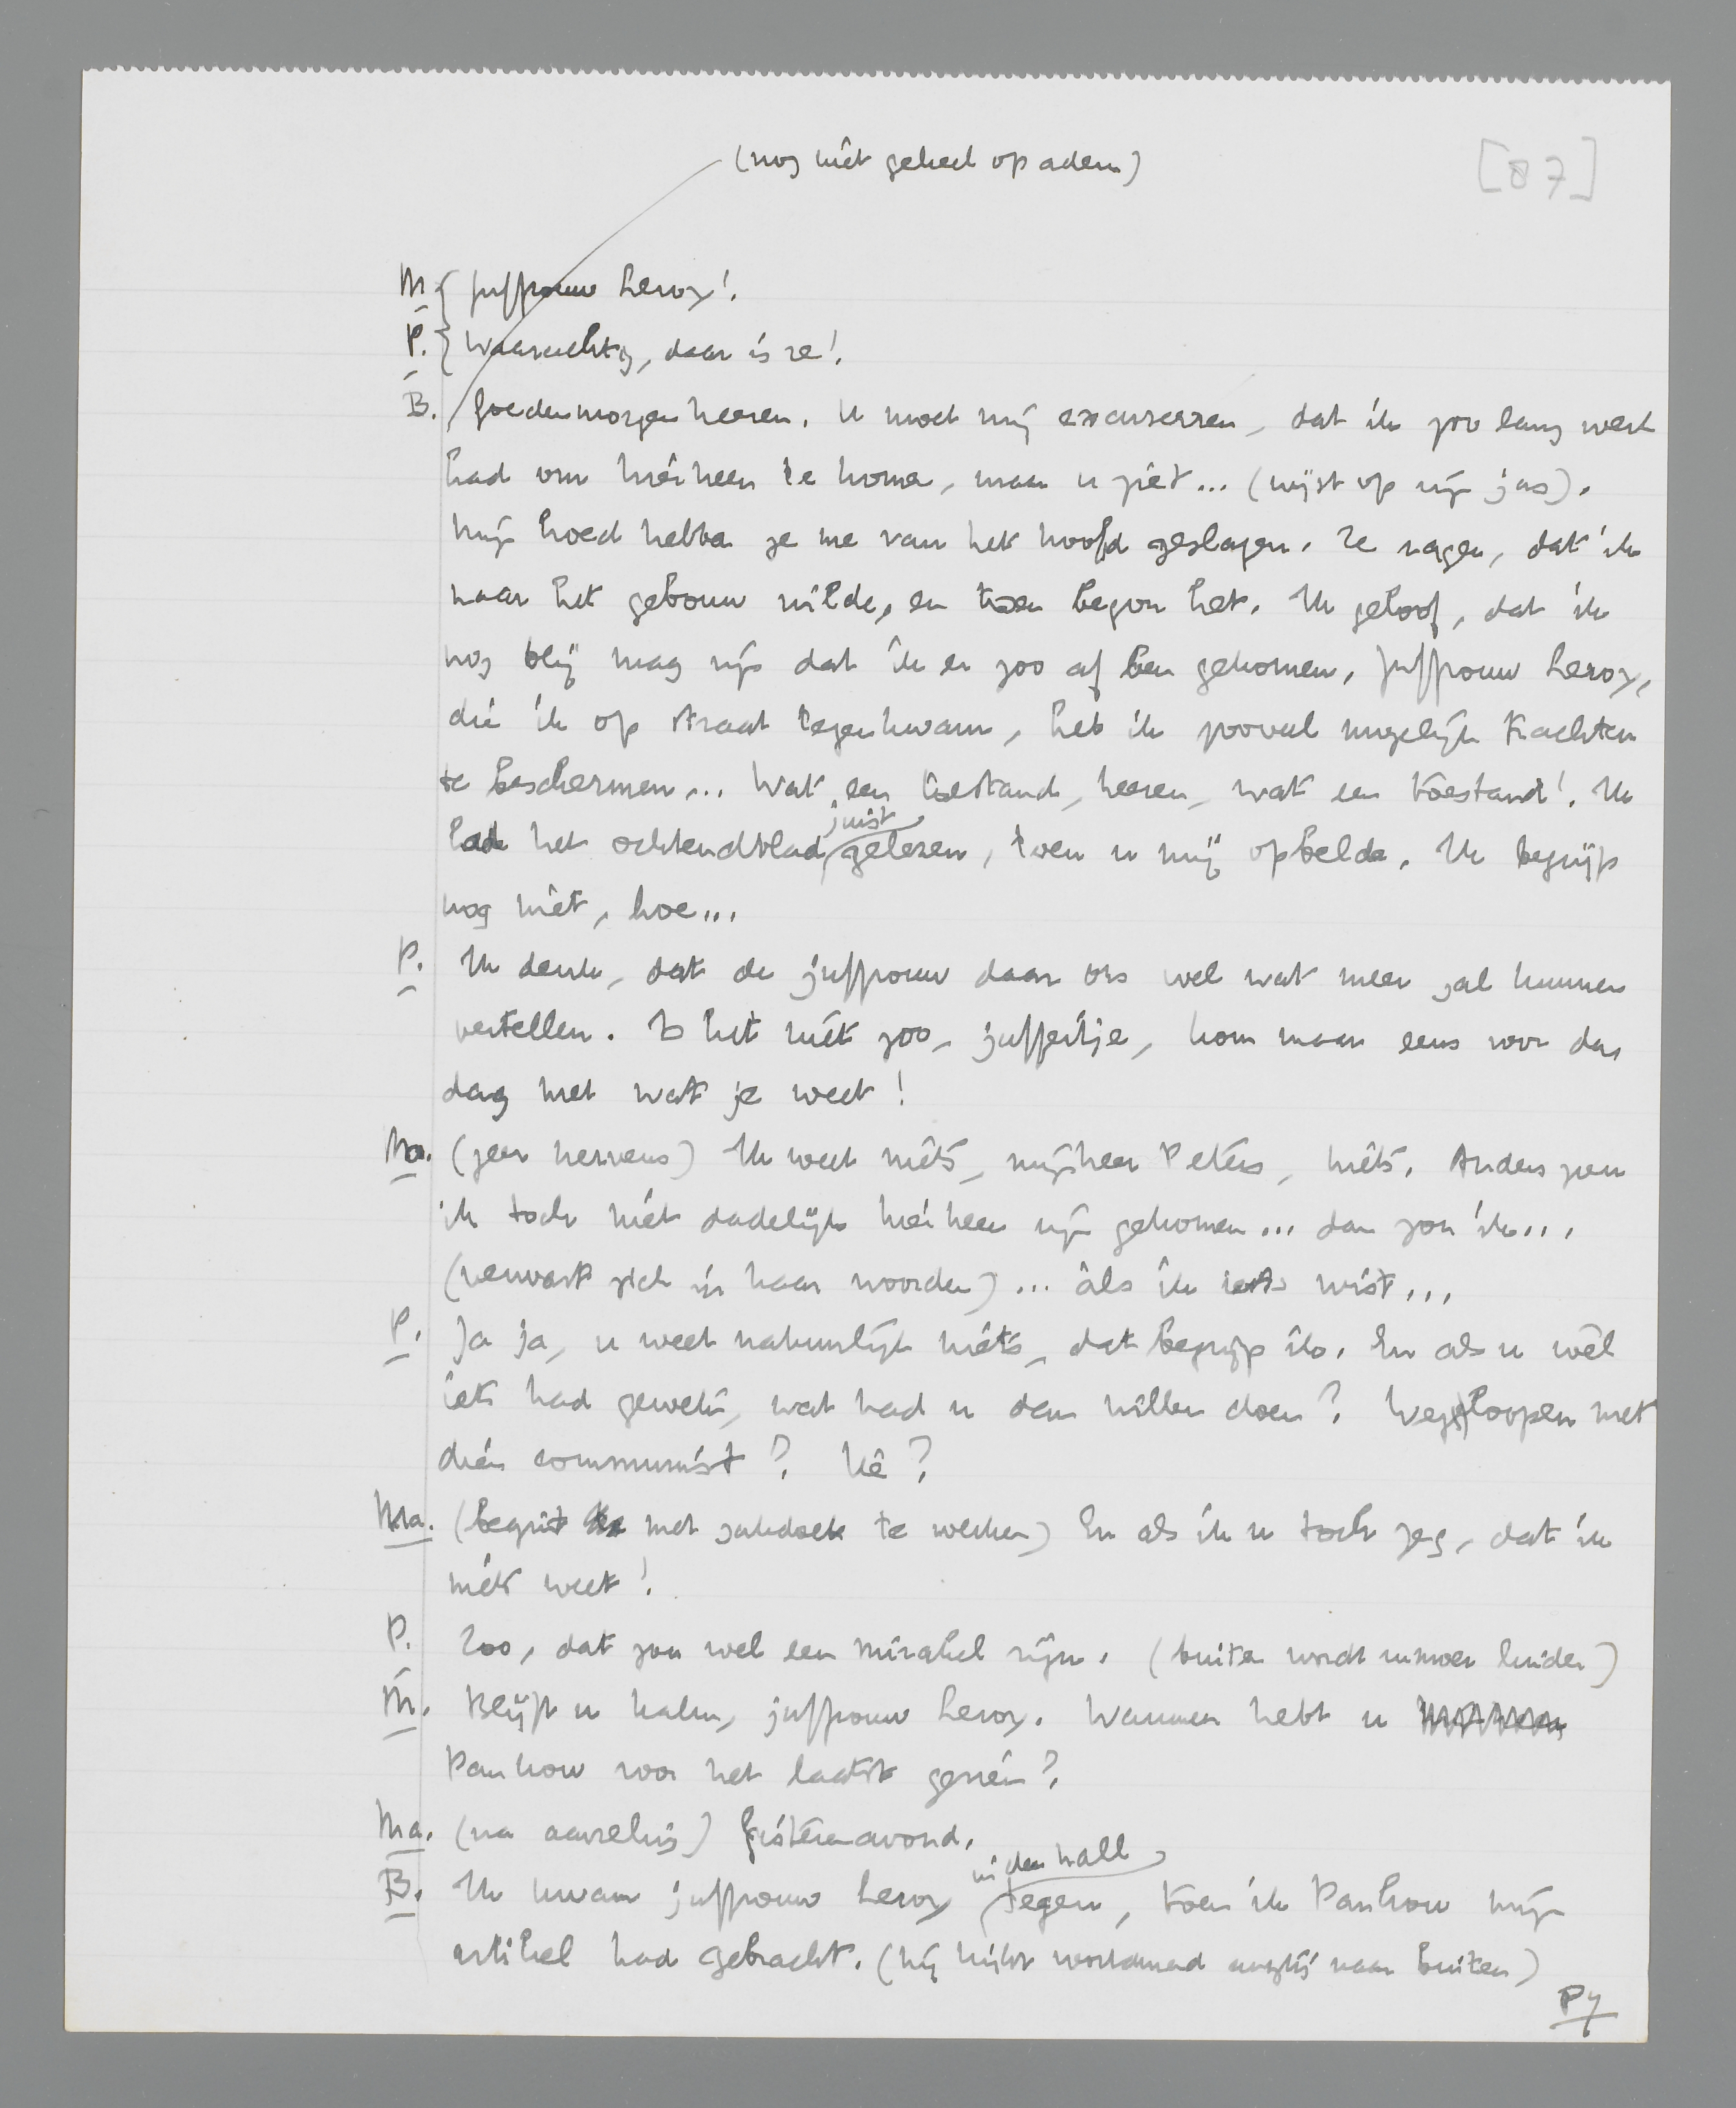 (nog niet geheel op adem)
[87]
M. { Juffrouw Leroy!
P. } Waarachtig, daar is ze!
B. Goedenmorgen heeren. U moet mij excuseeren, dat ik zoo lang werk
had om hierheen te komen, maar u ziet... (wijst op zijn jas).
Mijn hoed hebben ze me van het hoofd geslagen. Ze zagen, dat ik
naar het gebouw wilde, en toen begon het. Ik geloof, dat ik
nog blij mag zijn dat ik er zoo af ben gekomen. Juffrouw Leroy,
die ik op straat tegenkwam, heb ik zooveel mogelijk trachten
te beschermen... Wat een toestand, heeren, wat een toestand! Ik
had het ochtendblad juist gelezen, toen u mij opbelde. Ik begrijp
nog niet, hoe...
P. Ik denk, dat de juffrouw daar ons wel wat meer zal kunnen
vertellen. Is het niet zoo, juffertje, kom maar eens voor den
dag met wat je weet!
Ma. (zeer nerveus) Ik weet niets, mijnheer Peters, niets. Anders zou
ik toch niet dadelijk hierheen zijn gekomen... dan zou ik...
(verwart zich in haar woorden)... als ik iets wist...
P. Ja ja, u weet natuurlijk niets, dat begrijp ik. En als u wèl
iets had geweten, wat had u dan willen doen? Wegloopen met
dien communist? Hè?
Ma. (begint met zakdoek te werken) En als ik u toch zeg, dat ik
niets weet!
P. Zoo, dat zou wel een mirakel zijn. (buiten wordt rumoer luider)
M. Blijft u kalm, juffrouw Leroy. Wanneer hebt u
Pankow voor het laatst gezien?
Ma. (na aarzeling) Gisterenavond.
B. Ik kwam juffrouw Leroy in den hall tegen, toen ik Pankow mijn
artikel had gebracht. (hij kijkt voortdurend angstig naar buiten)
P7